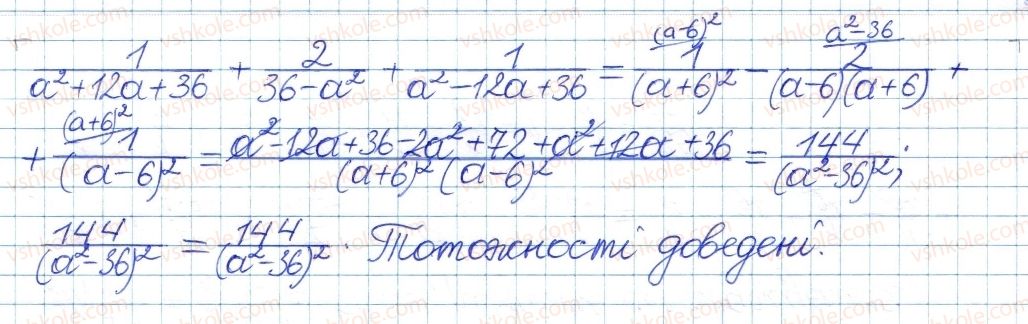 1/(a²+12a+36) + 2/(36-a²) + 1/(a²-12a+36) = (a-6)² 1/(a+6)² - a²-36 2/((a-6)(a+6)) +
+ (a+6)² 1/(a-6)² = (a²-12a+36-2a²+72+a²+12a+36)/((a+6)²(a-6)²) = 144/(a²-36)²;
144/(a²-36)² = 144/(a²-36)². Тотожності доведені.